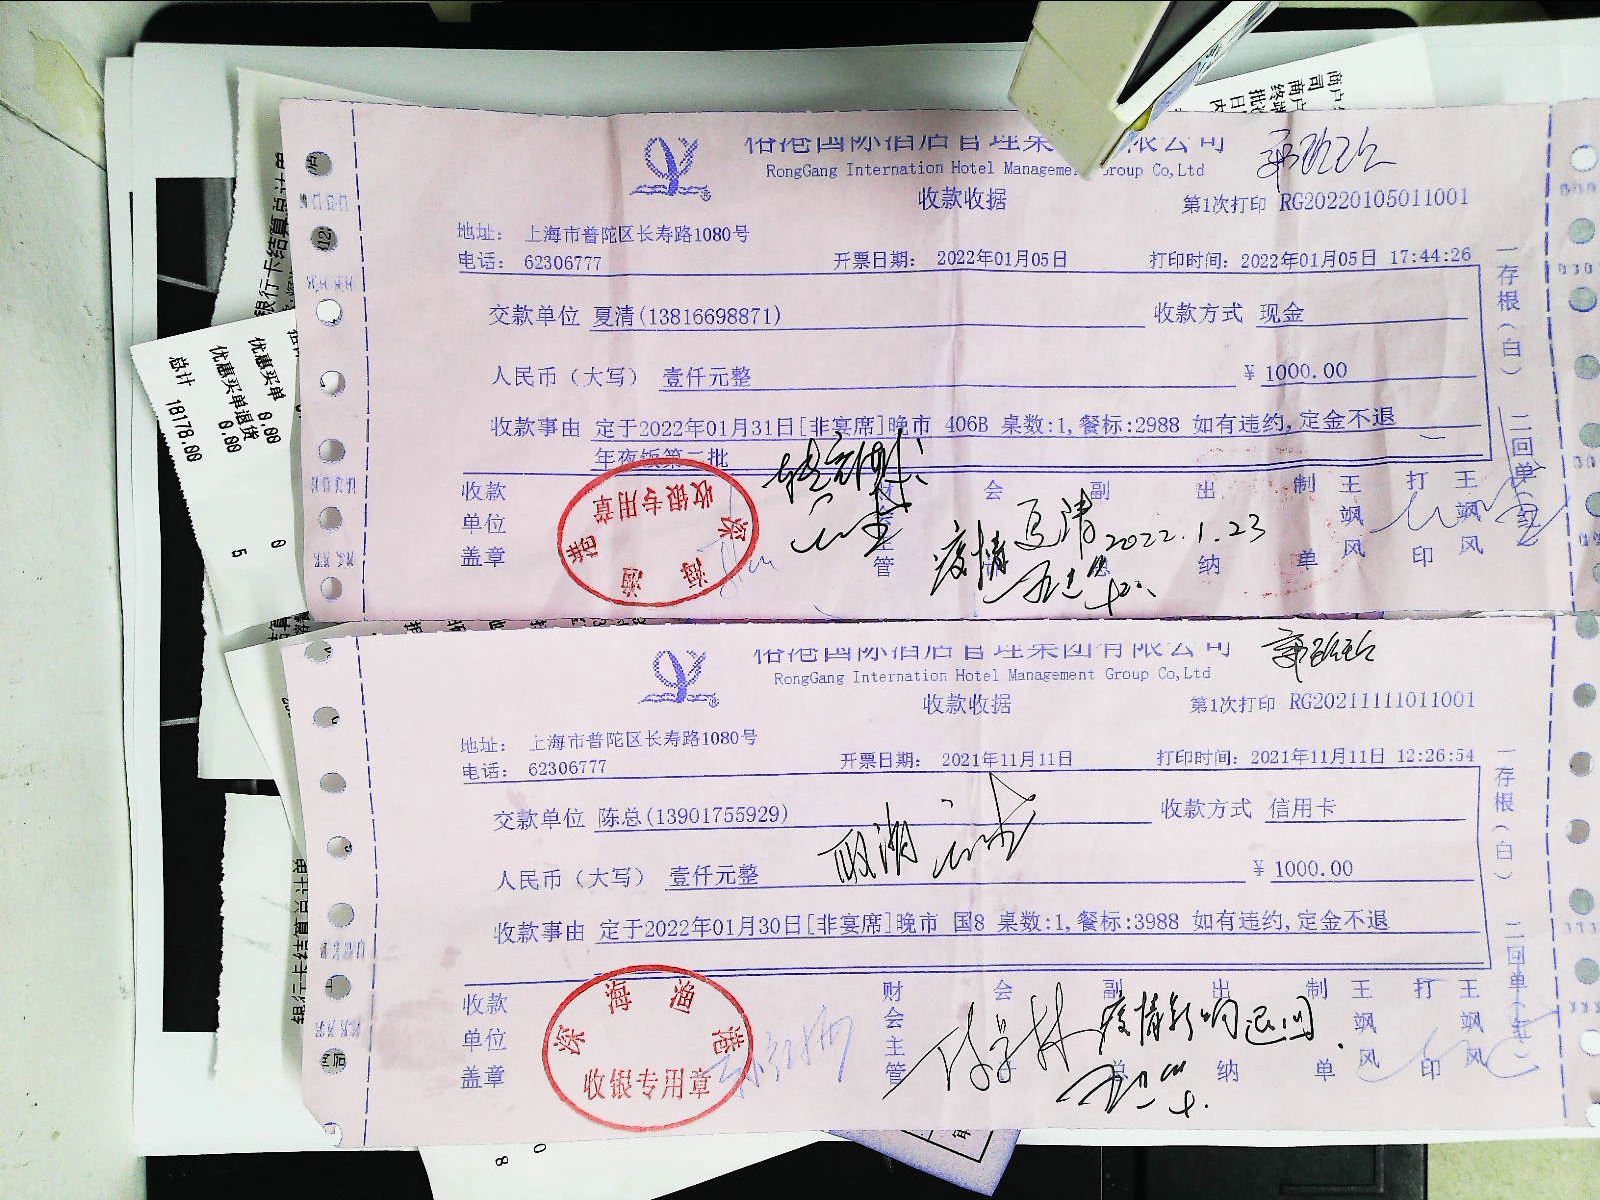 裕港国际酒店管理集 限公司
RongGang International Hotel Manageme Group Co,Ltd
收款收据
第1次打印 RG20220105011001
地址： 上海市普陀区长寿路1080号
电话： 62306777
开票日期： 2022年01月05日
打印时间：2022年01月05日 17:44:26
交款单位 夏清(13816698871)
收款方式 现金
人民币（大写） 壹仟元整
¥ 1000.00
收款事由 定于2022年01月31日[非宴席]晚市 406B 桌数:1,餐标:2988 如有违约,定金不退
年夜饭第二批
收款单位盖章
财会主管
会
副总
出纳
制单
王飒风
打印
王飒风
一存根（白） 二回单（红）
深海渔港
收银专用章
疫情 夏清 2022.1.23
裕港国际酒店管理集团有限公司
RongGang International Hotel Management Group Co,Ltd
收款收据
第1次打印 RG20211111011001
地址： 上海市普陀区长寿路1080号
电话： 62306777
开票日期： 2021年11月11日
打印时间：2021年11月11日 12:26:54
交款单位 陈总(13901755929)
收款方式 信用卡
人民币（大写） 壹仟元整
¥ 1000.00
取消
收款事由 定于2022年01月30日[非宴席]晚市 国8 桌数:1,餐标:3988 如有违约,定金不退
收款单位盖章
财会主管
会
副总
出纳
制单
王飒风
打印
王飒风
一存根（白） 二回单（红）
深海渔港
收银专用章
疫情影响退回
银行卡结算总计单
优惠买单 0.00
优惠买单退货 0.00
总计 18178.00
0
5
银行卡结算总计单
0
8